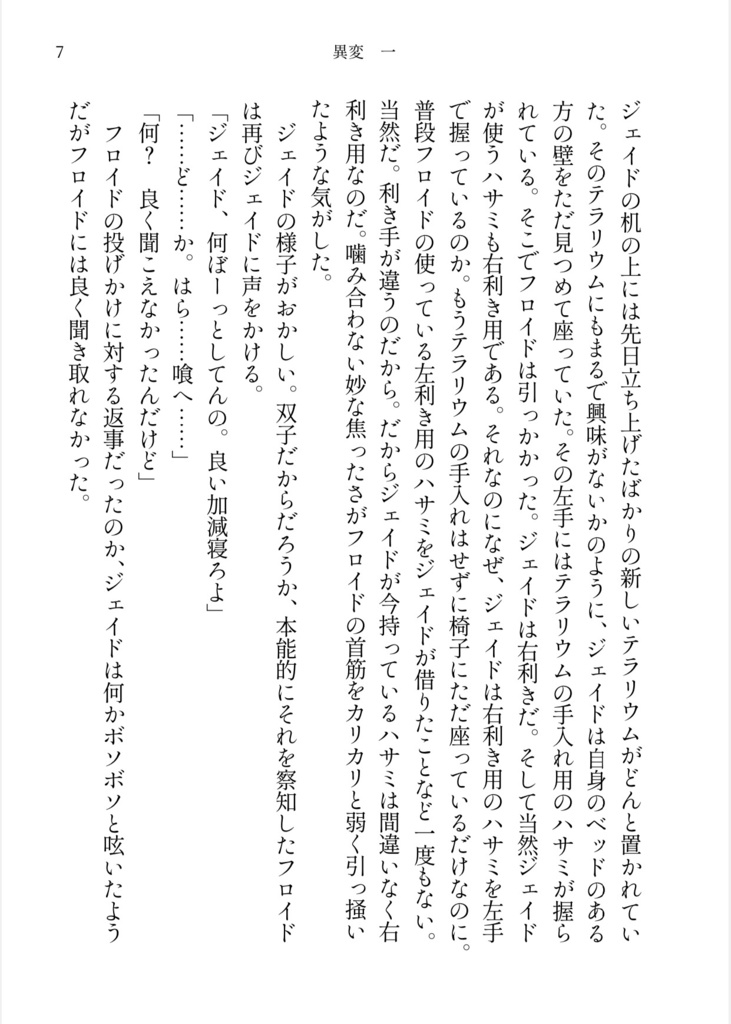 7
異変　一
ジェイドの机の上には先日立ち上げたばかりの新しいテラリウムがどんと置かれてい
た。そのテラリウムにもまるで興味がないかのように、ジェイドは自身のベッドのある
方の壁をただ見つめて座っていた。その左手にはテラリウムの手入れ用のハサミが握ら
れている。そこでフロイドは引っかかった。ジェイドは右利きだ。そして当然ジェイド
が使うハサミも右利き用である。それなのになぜ、ジェイドは右利き用のハサミを左手
で握っているのか。もうテラリウムの手入れはせずに椅子にただ座っているだけなのに。
普段フロイドの使っている左利き用のハサミをジェイドが借りたことなど一度もない。
当然だ。利き手が違うのだから。だからジェイドが今持っているハサミは間違いなく右
利き用なのだ。噛み合わない妙な焦ったさがフロイドの首筋をカリカリと弱く引っ掻い
たような気がした。
　ジェイドの様子がおかしい。双子だからだろうか、本能的にそれを察知したフロイド
は再びジェイドに声をかける。
「ジェイド、何ぼーっとしてんの。良い加減寝ろよ」
「……ど……か。はら……喰へ……」
「何？　良く聞こえなかったんだけど」
　フロイドの投げかけに対する返事だったのか、ジェイドは何かボソボソと呟いたよう
だがフロイドには良く聞き取れなかった。